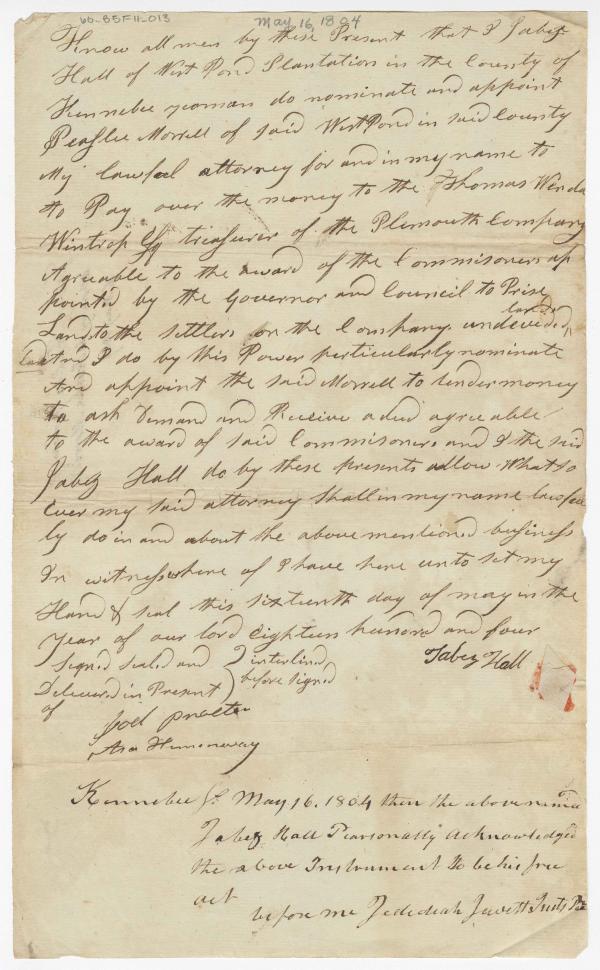 60-B5F11-013
May 16 1804
Know all men by these Present that I Jabez
Hall of West Pond Plantation in the County of
Kennebec yeoman do nominate and appoint
Peaslee Morrell of said West Pond in said County
My lawful attorney for and in my name to
to Pay over the money to the Thomas
Wintrop Esq treasurer of the Plemouth Company
Agreeable to the award of the Commisoners ap
pointed by the Governor and Council to Prise
Lands to the settlers or the Company undevided
And I do by this Power perticularly nominate
And appoint the said Morrell to tender money
to ask Demand and Receive a deed agreable
to the award of said Commisoners and I the said
Jabez Hall do by these presents allow What so
Ever my said attorney shall in my name lawful
ly do in and about the above mentioned business
In witness where of I have here unto set my
Hand & seal this sixteenth day of may in the
year of our lord Eighteen hundred and four
Signed sealed and interlined Jabez Hall
Delivered in Present before signed
of
Joel
Asa Hemenway
Kennebec Ss May 16. 1804 then the above named
Jabez Hall Pearsonally Acknowledged
the above Instrument to be his free
act
before me Jedediah Jewett Justs